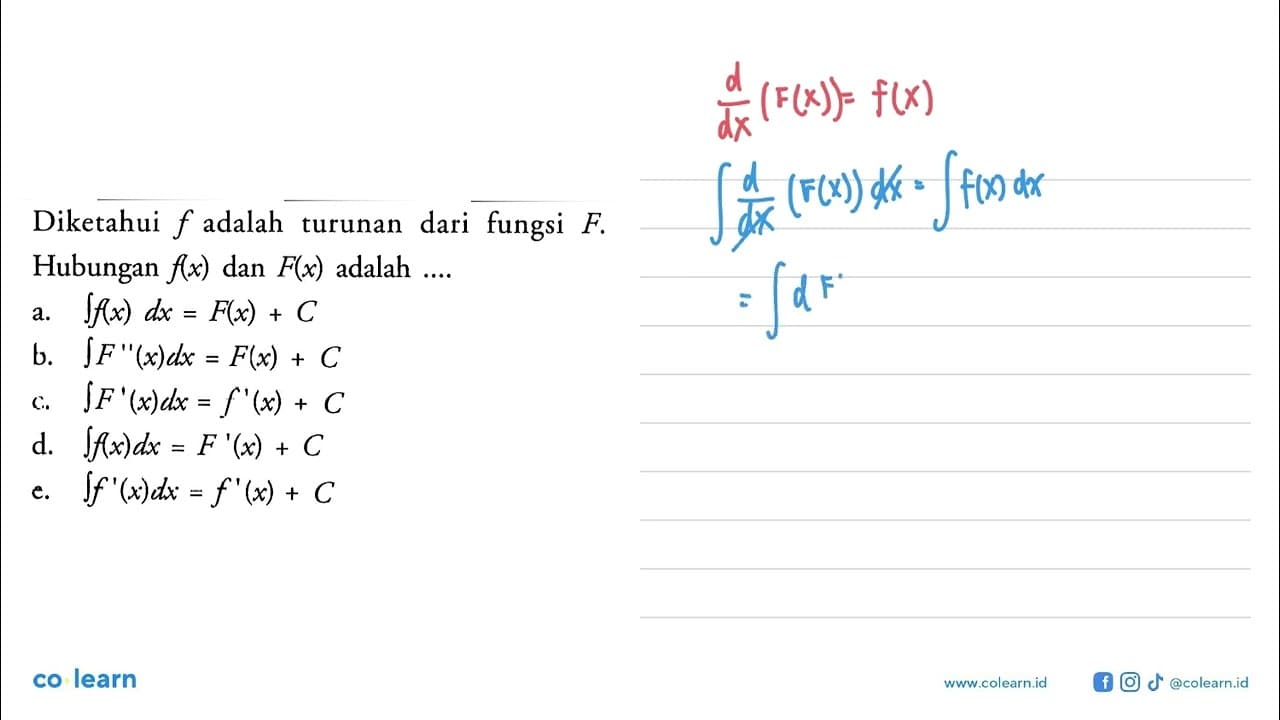 Diketahui f adalah turunan dari fungsi F.
Hubungan f(x) dan F(x) adalah ....
a. ∫f(x) dx = F(x) + C
b. ∫F''(x)dx = F(x) + C
c. ∫F'(x)dx = f'(x) + C
d. ∫f(x)dx = F'(x) + C
e. ∫f'(x)dx = f'(x) + C
d/dx (F(x)) = f(x)
∫ d/dx (F(x)) dx = ∫ f(x) dx
= ∫ d F
co learn
www.colearn.id
@colearn.id